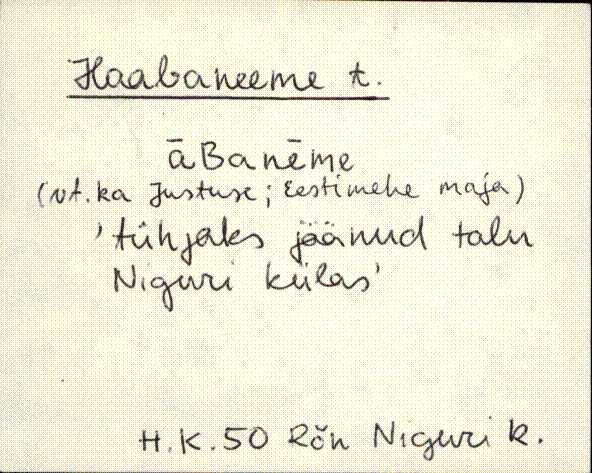 Haabaneeme t.
āBanēme
(vt. ka Justuse; Eestimehe maja)
'tühjaks jäänud talu
Niguri külas'
H.K. 50 Rõn Niguri k.